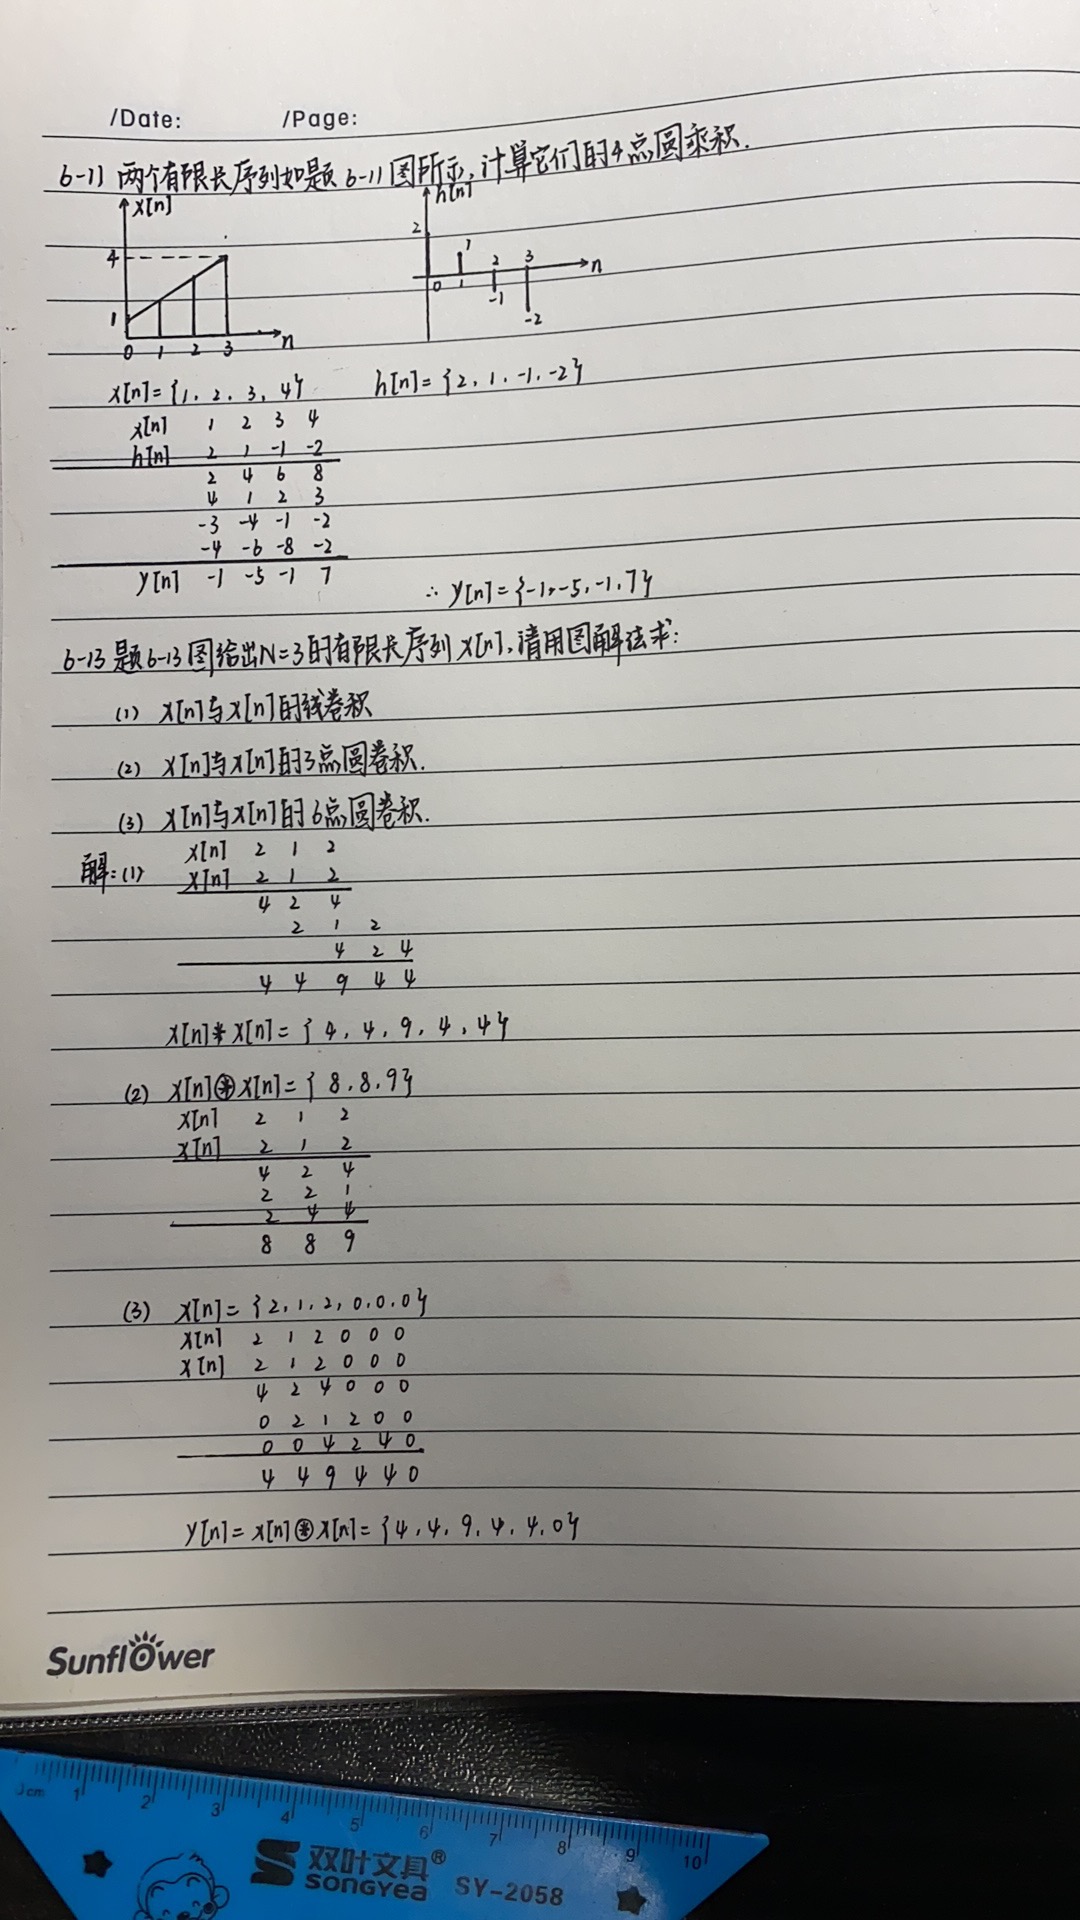 /Date: /Page:
6-11 两个有限长序列如题6-11图所示,计算它们的4点圆乘积.
x[n] h[n]
4 1 0 1 2 3 n
2 1 0 1 2 3 n -1 -2
x[n]={1, 2, 3, 4} h[n]={2, 1, -1, -2}
x[n] 1 2 3 4
h[n] 2 1 -1 -2
2 4 6 8
4 1 2 3
-3 -4 -1 -2
-4 -6 -8 -2
y[n] -1 -5 -1 7
∴ y[n]={-1, -5, -1, 7}
6-13 题6-13图给出N=3的有限长序列x[n],请用图解法求:
(1) x[n]与x[n]的线卷积
(2) x[n]与x[n]的3点圆卷积.
(3) x[n]与x[n]的6点圆卷积.
解:(1) x[n] 2 1 2
x[n] 2 1 2
4 2 4
2 1 2
4 2 4
4 4 9 4 4
x[n]*x[n]={4, 4, 9, 4, 4}
(2) x[n]⊛x[n]={8, 8, 9}
x[n] 2 1 2
x[n] 2 1 2
4 2 4
2 2 1
2 4 4
8 8 9
(3) x[n]={2, 1, 2, 0, 0, 0}
x[n] 2 1 2 0 0 0
x[n] 2 1 2 0 0 0
4 2 4 0 0 0
0 2 1 2 0 0
0 0 4 2 4 0
4 4 9 4 4 0
y[n]=x[n]⊛x[n]={4, 4, 9, 4, 4, 0}
Sunflower
0cm 1 2 3 4 5 6 7 8 9 10
双叶文具®
SONGYea SY-2058